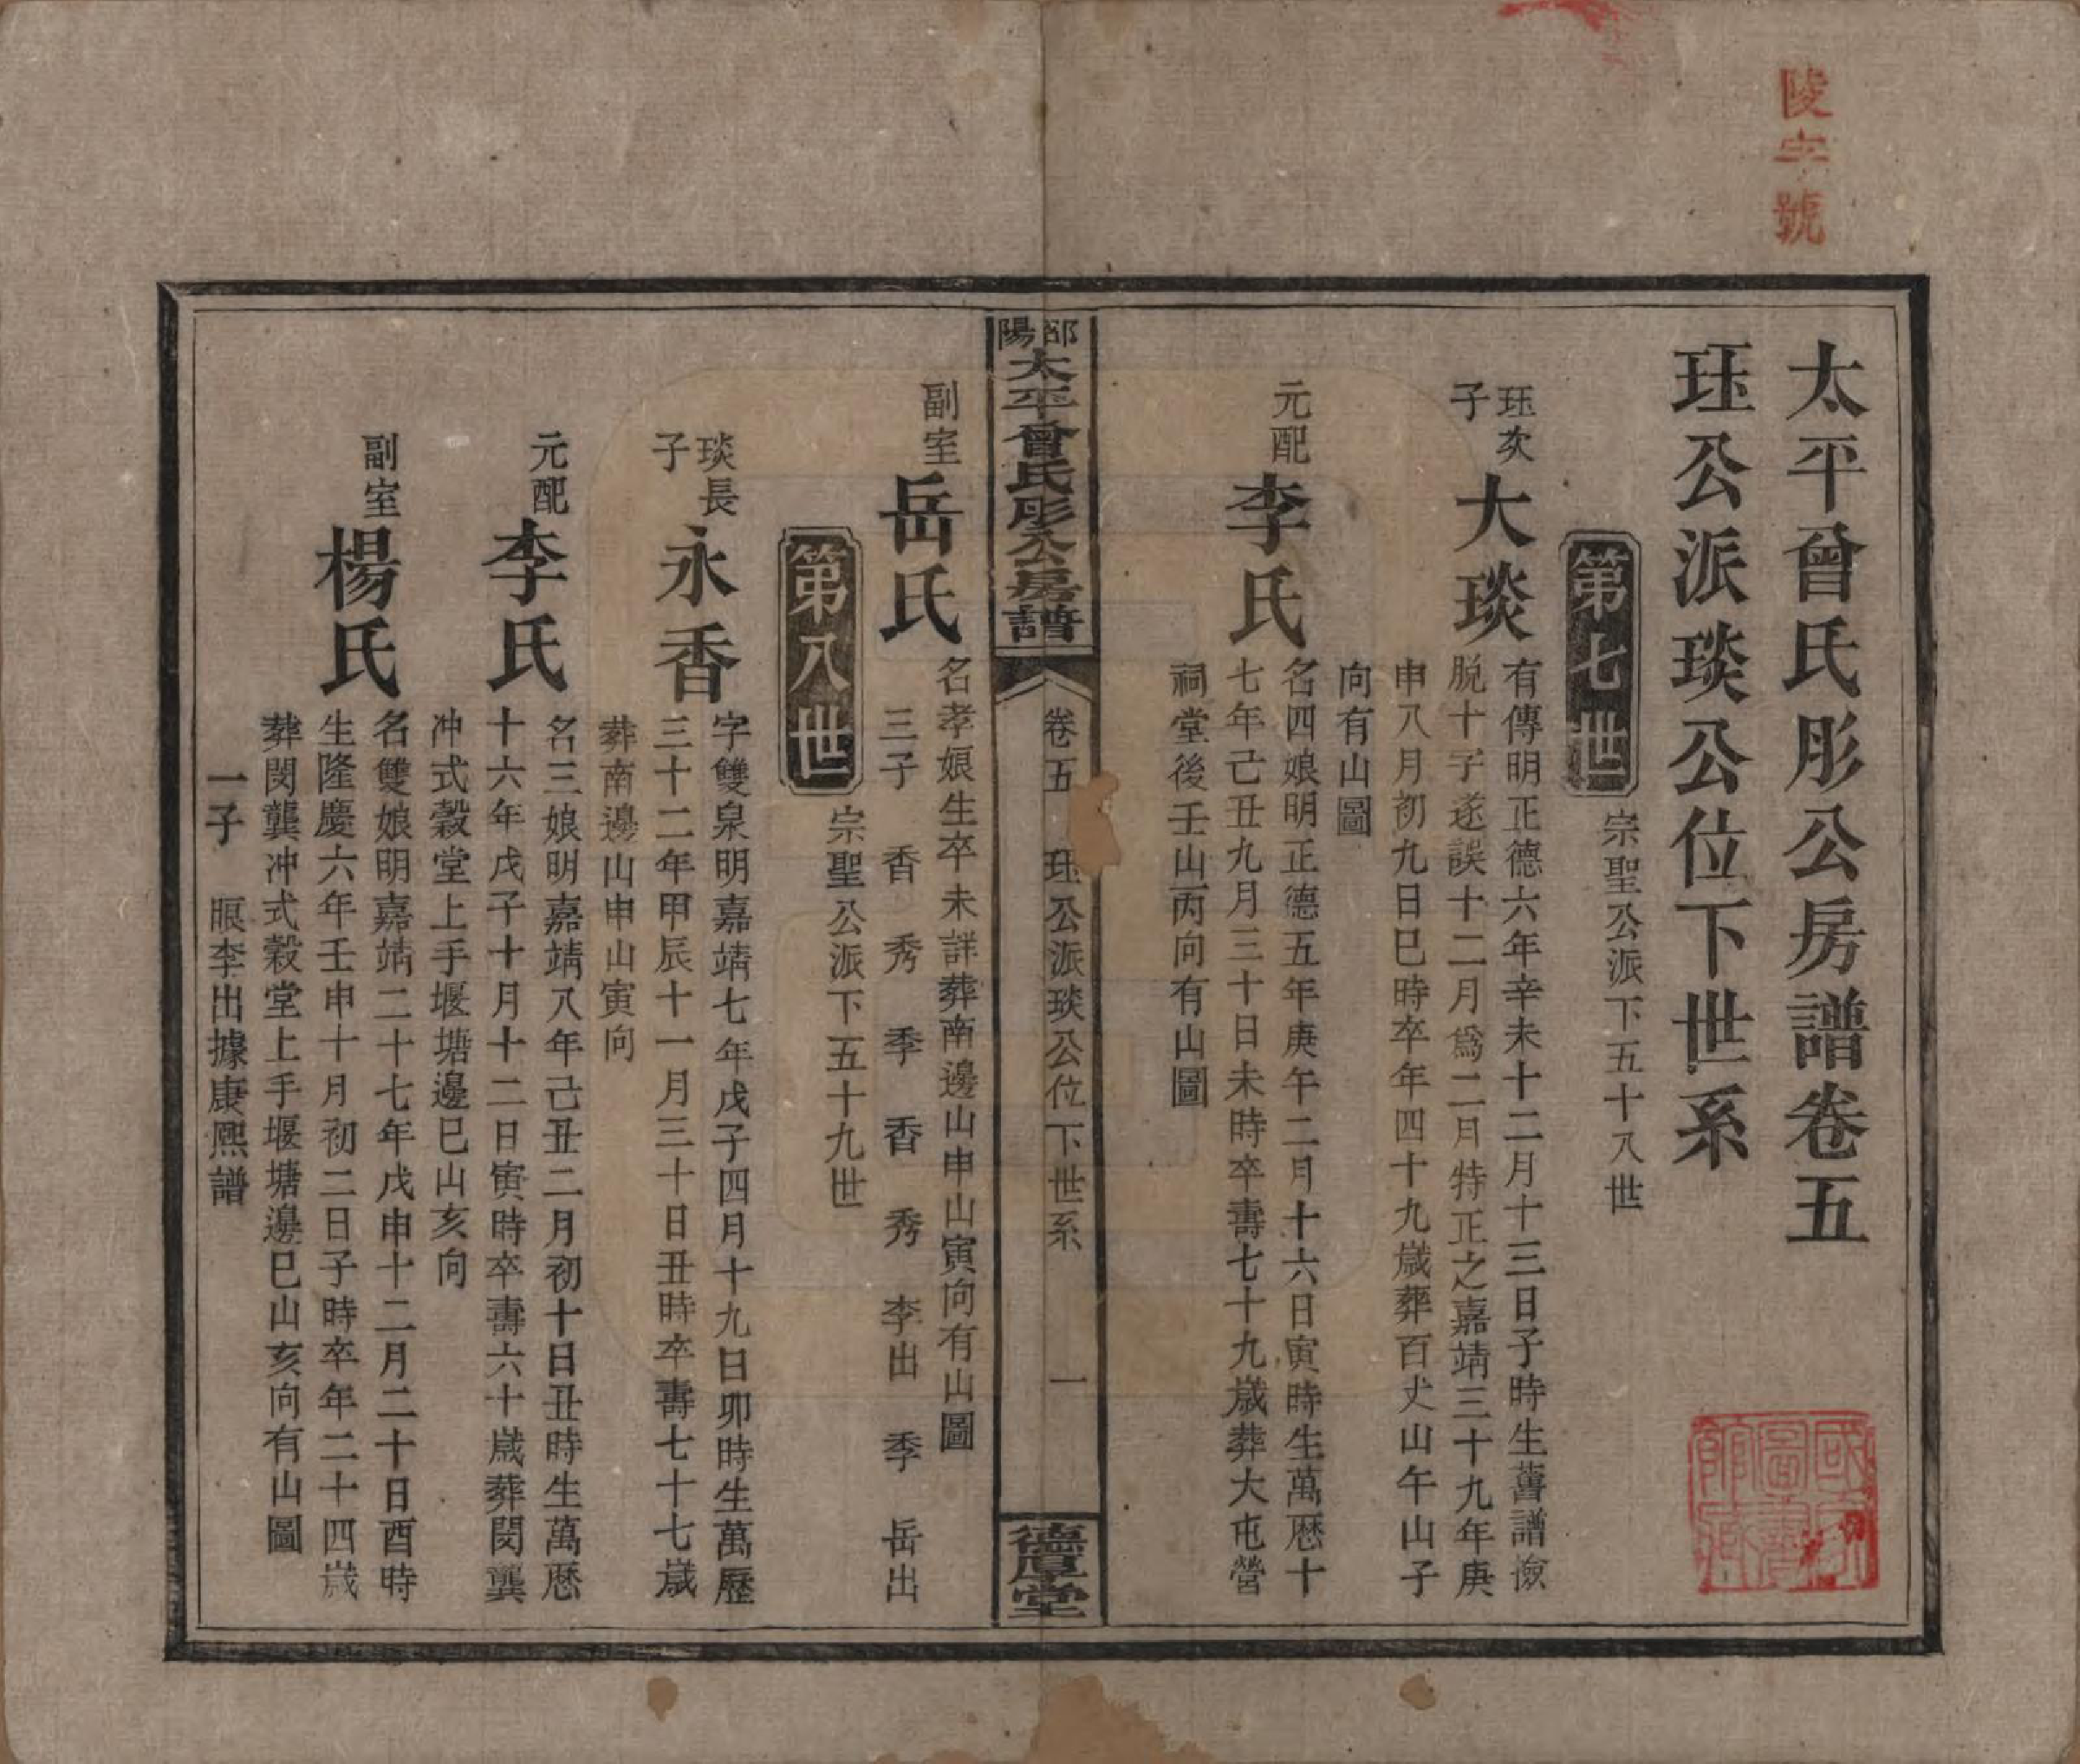 陵字號
太平曾氏彤公房譜卷五
珏公派琰公位下世系
第七世
宗聖公派下五十八世
珏次子
大琰
有傳明正德六年辛未十二月十三日子時生舊譜撿
脫十子遂誤十二月爲二月特正之嘉靖三十九年庚
申八月初九日巳時卒年四十九歲葬百丈山午山子
向有山圖
元配
李氏
名四娘明正德五年庚午二月十六日寅時生萬厯十
七年己丑九月三十日未時卒壽七十九歲葬大屯營
祠堂後壬山丙向有山圖
邵陽
太平曾氏彤公房譜
卷五
珏公派琰公位下世系
一
德厚堂
副室
岳氏
名孝娘生卒未詳葬南邊山申山寅向有山圖
三子 香 秀 季 香 秀 李出 季 岳出
第八世
宗聖公派下五十九世
琰長子
永香
字雙泉明嘉靖七年戊子四月十九日卯時生萬歷
三十二年甲辰十一月三十日丑時卒壽七十七歲
葬南邊山申山寅向
元配
李氏
名三娘明嘉靖八年己丑二月初十日丑時生萬厯
十六年戊子十月十二日寅時卒壽六十歲葬閔龔
冲式穀堂上手堰塘邊巳山亥向
副室
楊氏
名雙娘明嘉靖二十七年戊申十二月二十日酉時
生隆慶六年壬申十月初二日子時卒年二十四歲
葬閔龔冲式穀堂上手堰塘邊巳山亥向有山圖
一子 李出據康熙譜
國家圖書館藏